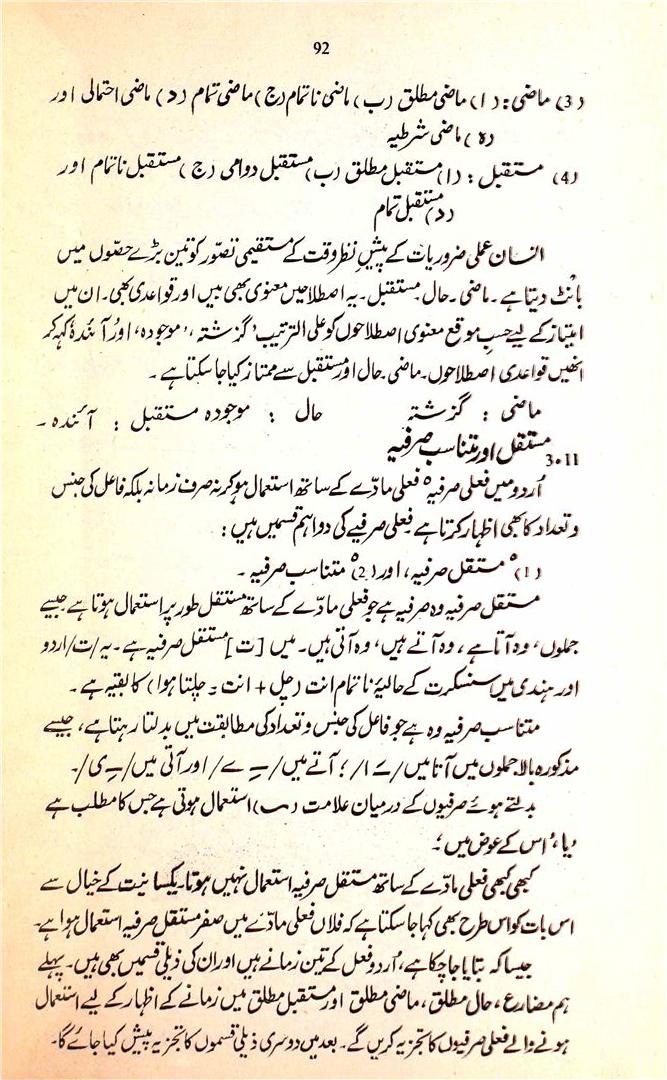 92
(3) ماضی: (ا) ماضی مطلق (ب) ماضی ناتمام (ج) ماضی تمام (د) ماضی احتمالی اور
(ہ) ماضی شرطیہ
(4) مستقبل: (ا) مستقبل مطلق (ب) مستقبل دوامی (ج) مستقبل ناتمام اور
(د) مستقبل تمام
انسان عملی ضروریات کے پیشِ نظر وقت کے مستقیمی تصوّر کو تین بڑے حصّوں میں
بانٹ دیتا ہے۔ ماضی۔ حال۔ مستقبل۔ یہ اصطلاحیں معنوی بھی ہیں اور قواعدی بھی۔ ان میں
امتیاز کے لیے حسبِ موقع معنوی اصطلاحوں کو علی الترتیب 'گزشتہ'، 'موجودہ'، اور 'آئندہ' کہہ کر
انھیں قواعدی اصطلاحوں۔ ماضی۔ حال اور مستقبل سے ممتاز کیا جا سکتا ہے۔
ماضی : گزشتہ حال : موجودہ مستقبل : آئندہ۔
3.11 مستقل اور متناسب صرفیہ
اُردو میں فعلی صرفیہ فعلی مادّے کے ساتھ استعمال ہو کر نہ صرف زمانہ بلکہ فاعل کی جنس
و تعداد کا بھی اظہار کرتا ہے۔ فعلی صرفیے کی دو اہم قسمیں ہیں:
(1) مستقل صرفیہ، اور (2) متناسب صرفیہ۔
مستقل صرفیہ وہ صرفیہ ہے جو فعلی مادّے کے ساتھ مستقل طور پر استعمال ہوتا ہے جیسے
جملوں، وہ آتا ہے، وہ آتے ہیں، وہ آتی ہیں۔ میں [ت] مستقل صرفیہ ہے۔ یہ /ت/ اردو
اور ہندی میں سنسکرت کے حالیۂ ناتمام انت (چل + انت = چلتا ہوا) کا بقیہ ہے۔
متناسب صرفیہ وہ ہے جو فاعل کی جنس و تعداد کی مطابقت میں بدلتا رہتا ہے، جیسے
مذکورہ بالا جملوں میں آتا میں /ـَـ ا/؛ آتے میں /ـِـ ے/ اور آتی میں /ـِـ ی/۔
بدلتے ہوئے صرفیوں کے درمیان علامت (~) استعمال ہوتی ہے جس کا مطلب ہے
'یا'، 'اس کے عوض میں'؛
کبھی کبھی فعلی مادّے کے ساتھ مستقل صرفیہ استعمال نہیں ہوتا۔ یکسانیت کے خیال سے
اس بات کو اس طرح بھی کہا جا سکتا ہے کہ فلاں فعلی مادّے میں صفر مستقل صرفیہ استعمال ہوا ہے۔
جیسا کہ بتایا جا چکا ہے، اُردو فعل کے تین زمانے ہیں اور ان کی ذیلی قسمیں بھی ہیں۔ پہلے
ہم مضارع، حال مطلق، ماضی مطلق اور مستقبل مطلق میں زمانے کے اظہار کے لیے استعمال
ہونے والے فعلی صرفیوں کا تجزیہ کریں گے۔ بعد میں دوسری ذیلی قسموں کا تجزیہ پیش کیا جائے گا۔